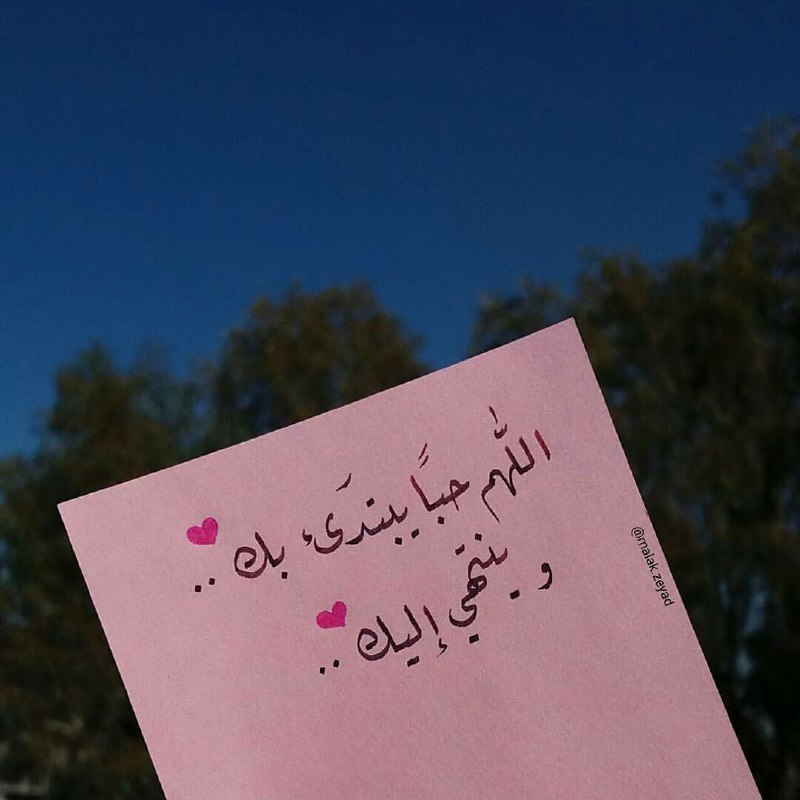 اللّٰهم حبًا يبتدَىء بك ..
و ينتهي إليك ..
@malak.zeyad